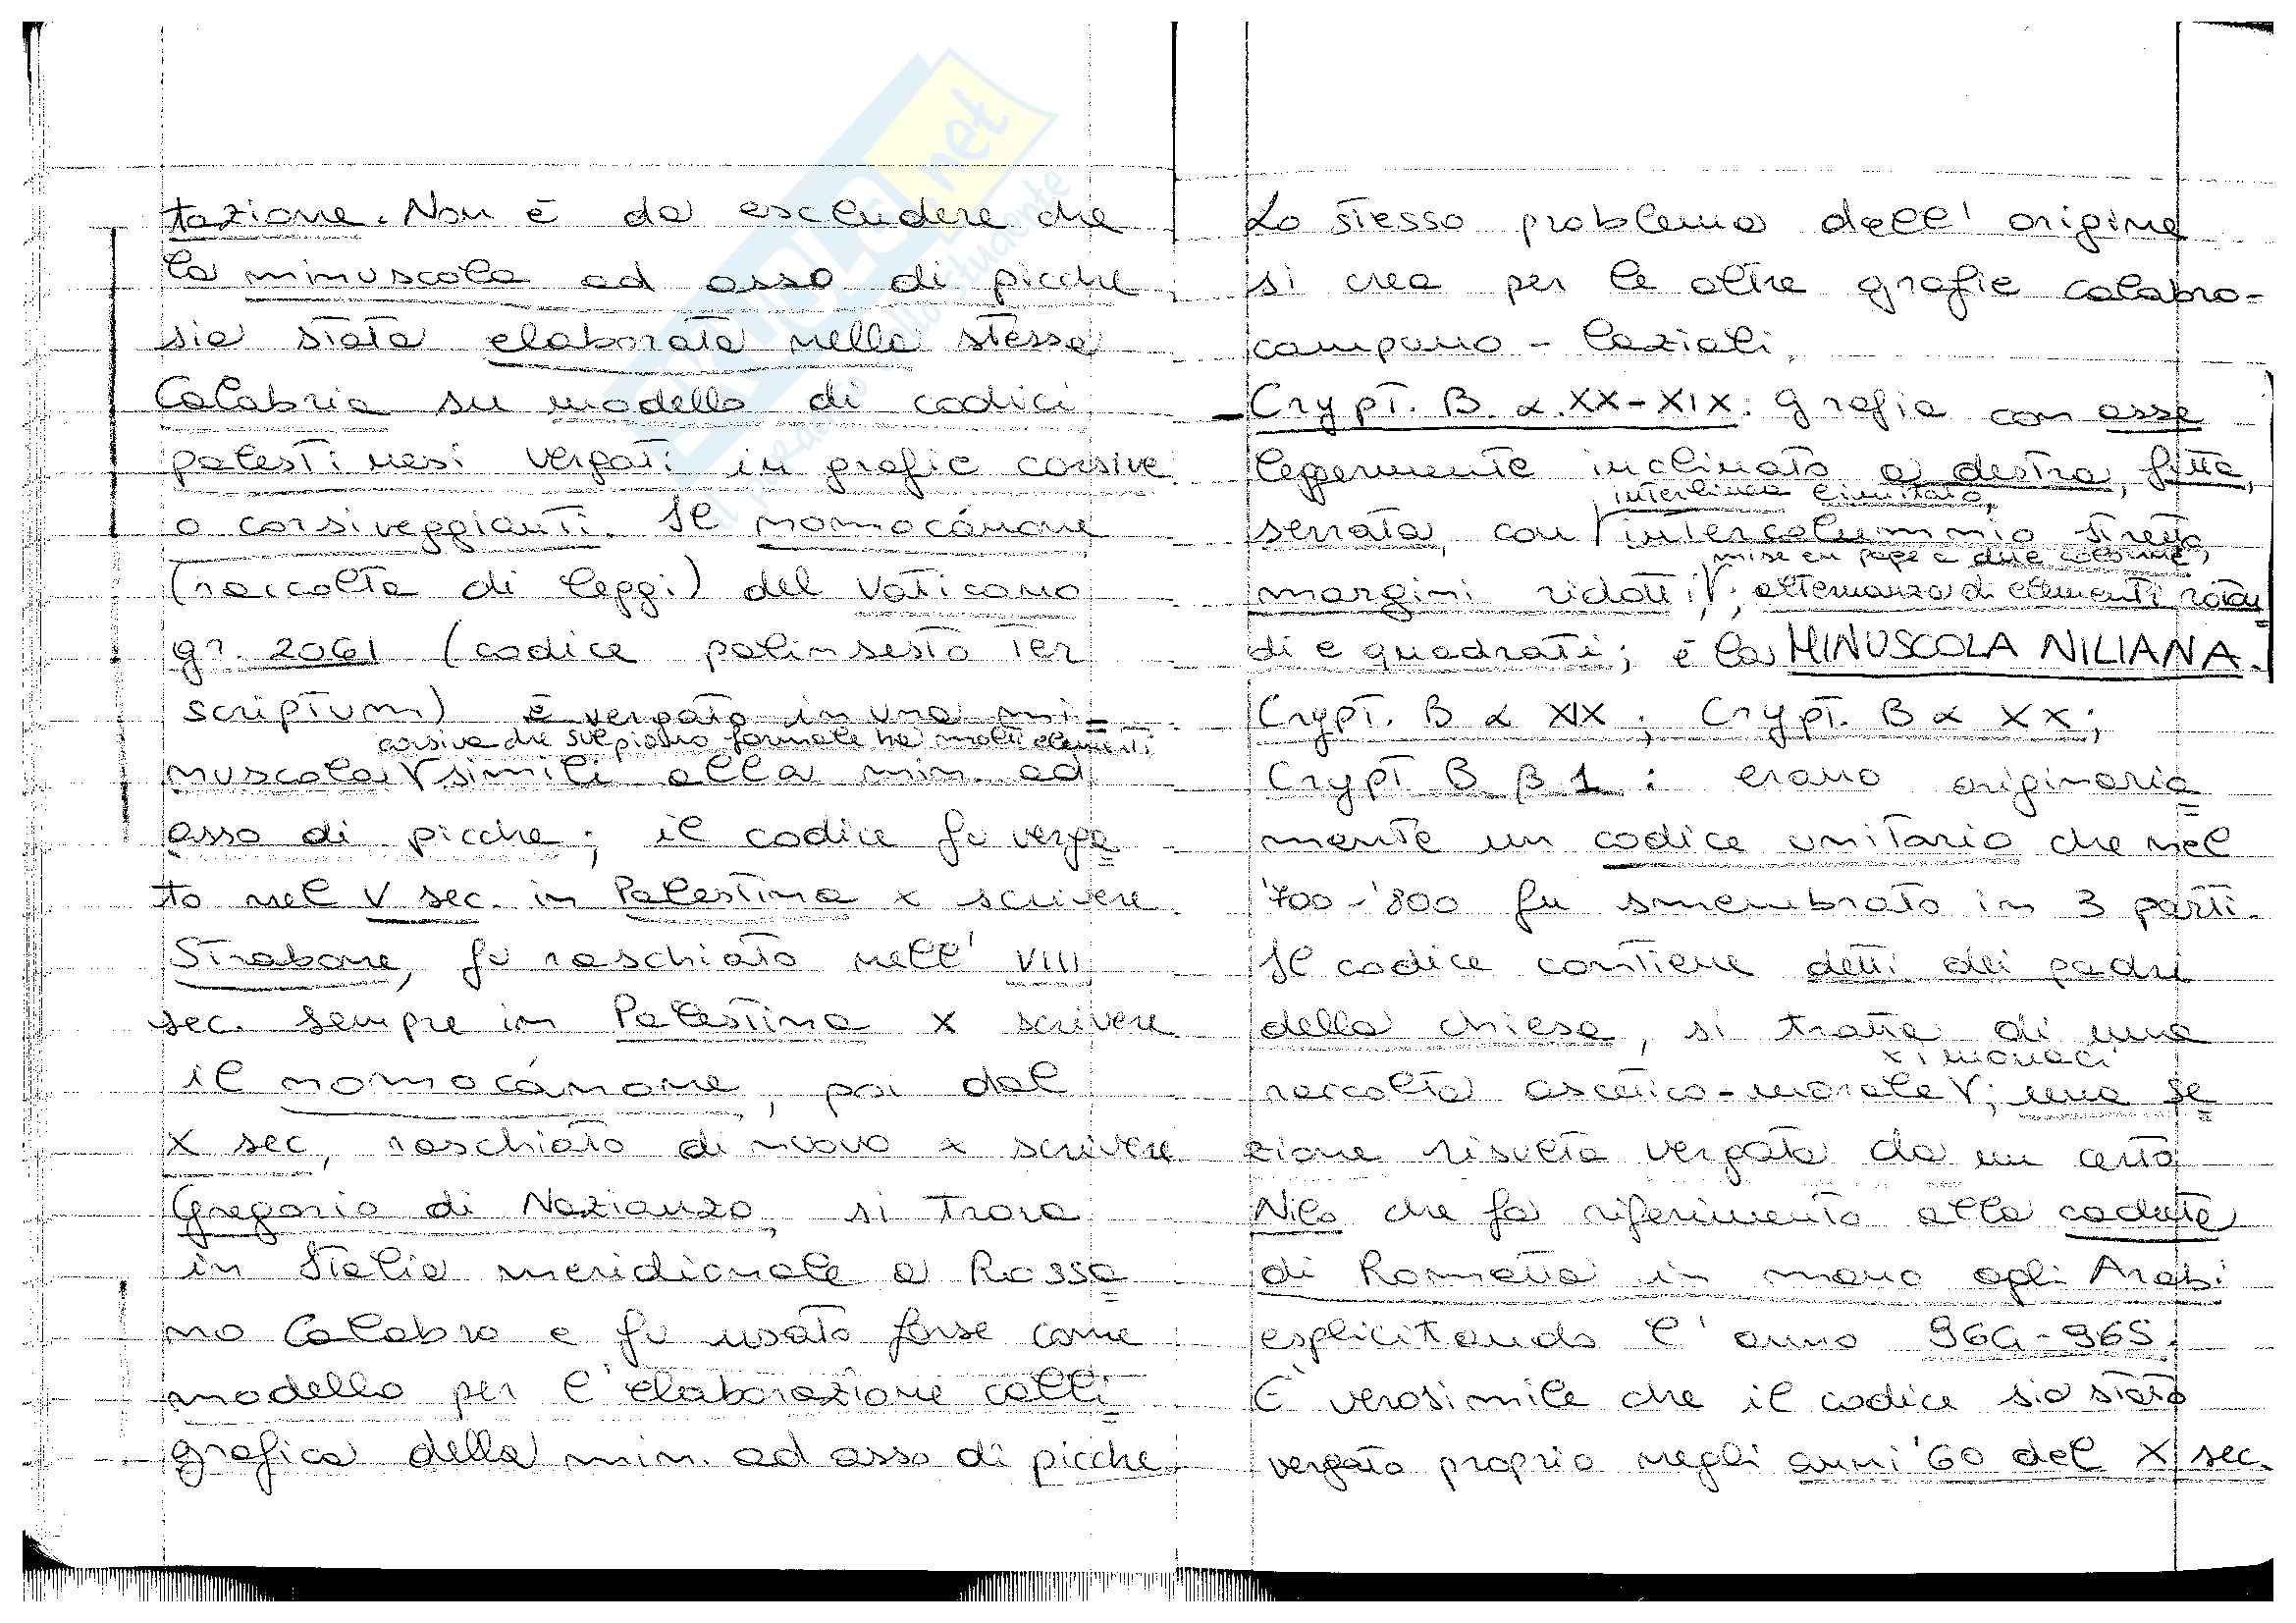 tazione. Non è da escludere che
la minuscola ad asso di picche
sia stata elaborata nella stessa
Calabria su modello di codici
palestinesi vergati in grafie corsive
o corsiveggianti. Il nomocánone
(raccolta di leggi) del Vaticano
gr. 2061 (codice palinsesto ter
scriptum) è vergato in una mi=
corsiva che sul piano formale ha molti elementi
nuscola V simili alla min. ad
asso di picche; il codice fu verga=
to nel V sec. in Palestina x scrivere
Strabone, fu raschiato nell' VIII
sec. sempre in Palestina x scrivere
il nomocánone, poi dal
X sec, raschiato di nuovo x scrivere
Gregorio di Nazianzo, si trova
in Italia meridionale a Rossa=
no Calabro e fu usato forse come
modello per l'elaborazione calli=
grafica della min. ad asso di picche.
Lo stesso problema dell' origine
si crea per le altre grafie calabro-
campano - laziali.
- Crypt. B. α. XX-XIX: grafia con asse
leggermente inclinato a destra, fitta,
interlinea limitato,
serrata, con V intercolumnio stretto,
mise en page a due colonne,
margini ridotti, V; alternanza di elementi roton=
di e quadrati; è la MINUSCOLA NILIANA.
Crypt. B α XIX; Crypt. B α XX;
Crypt B β 1: erano originaria=
mente un codice unitario che nel
'700-'800 fu smembrato in 3 parti.
Il codice contiene detti dei padri
della chiesa, si tratta di una
x i monaci
raccolta ascetico-morale V; una se=
zione risulta vergata da un certo
Nilo che fa riferimento alla caduta
di Rometta in mano agli Arabi
esplicitando l' anno 964-965.
E' verosimile che il codice sia stato
vergato proprio negli anni '60 del X sec.